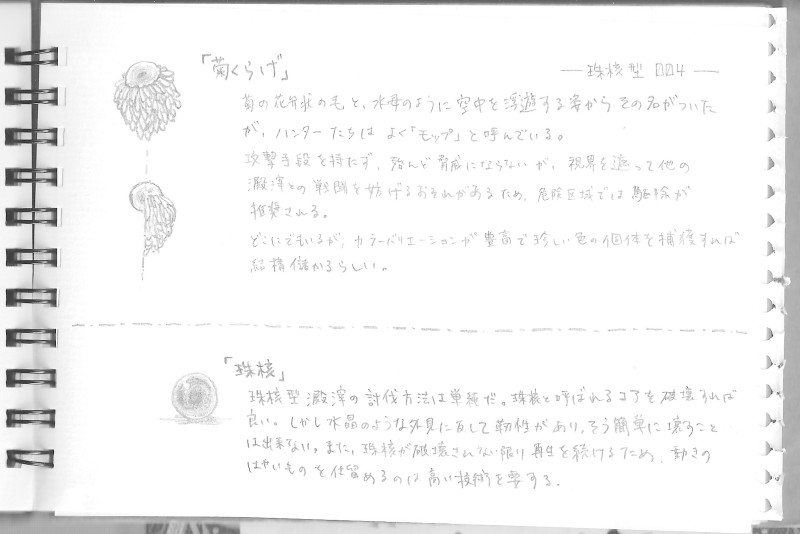 「菊くらげ」
―珠核型 004―
菊の花弁状の毛と、水母のように空中を浮遊する姿からその名がついた
が、ハンターたちはよく「モップ」と呼んでいる。
攻撃手段を持たず、殆んど脅威にならないが、視界を遮って他の
澱滓との戦闘を妨げるおそれがあるため、危険区域では駆除が
推奨される。
どこにでもいるが、カラーバリエーションが豊富で珍しい色の個体を捕獲すれば
結構儲かるらしい。
「珠核」
珠核型澱滓の討伐方法は単純だ。珠核と呼ばれるコアを破壊すれば
良い。しかし水晶のような外見に反して靭性があり、そう簡単に壊すこと
は出来ない。また、珠核が破壊されない限り再生を続けるため、動きの
はやいものを仕留めるのは高い技術を要する。